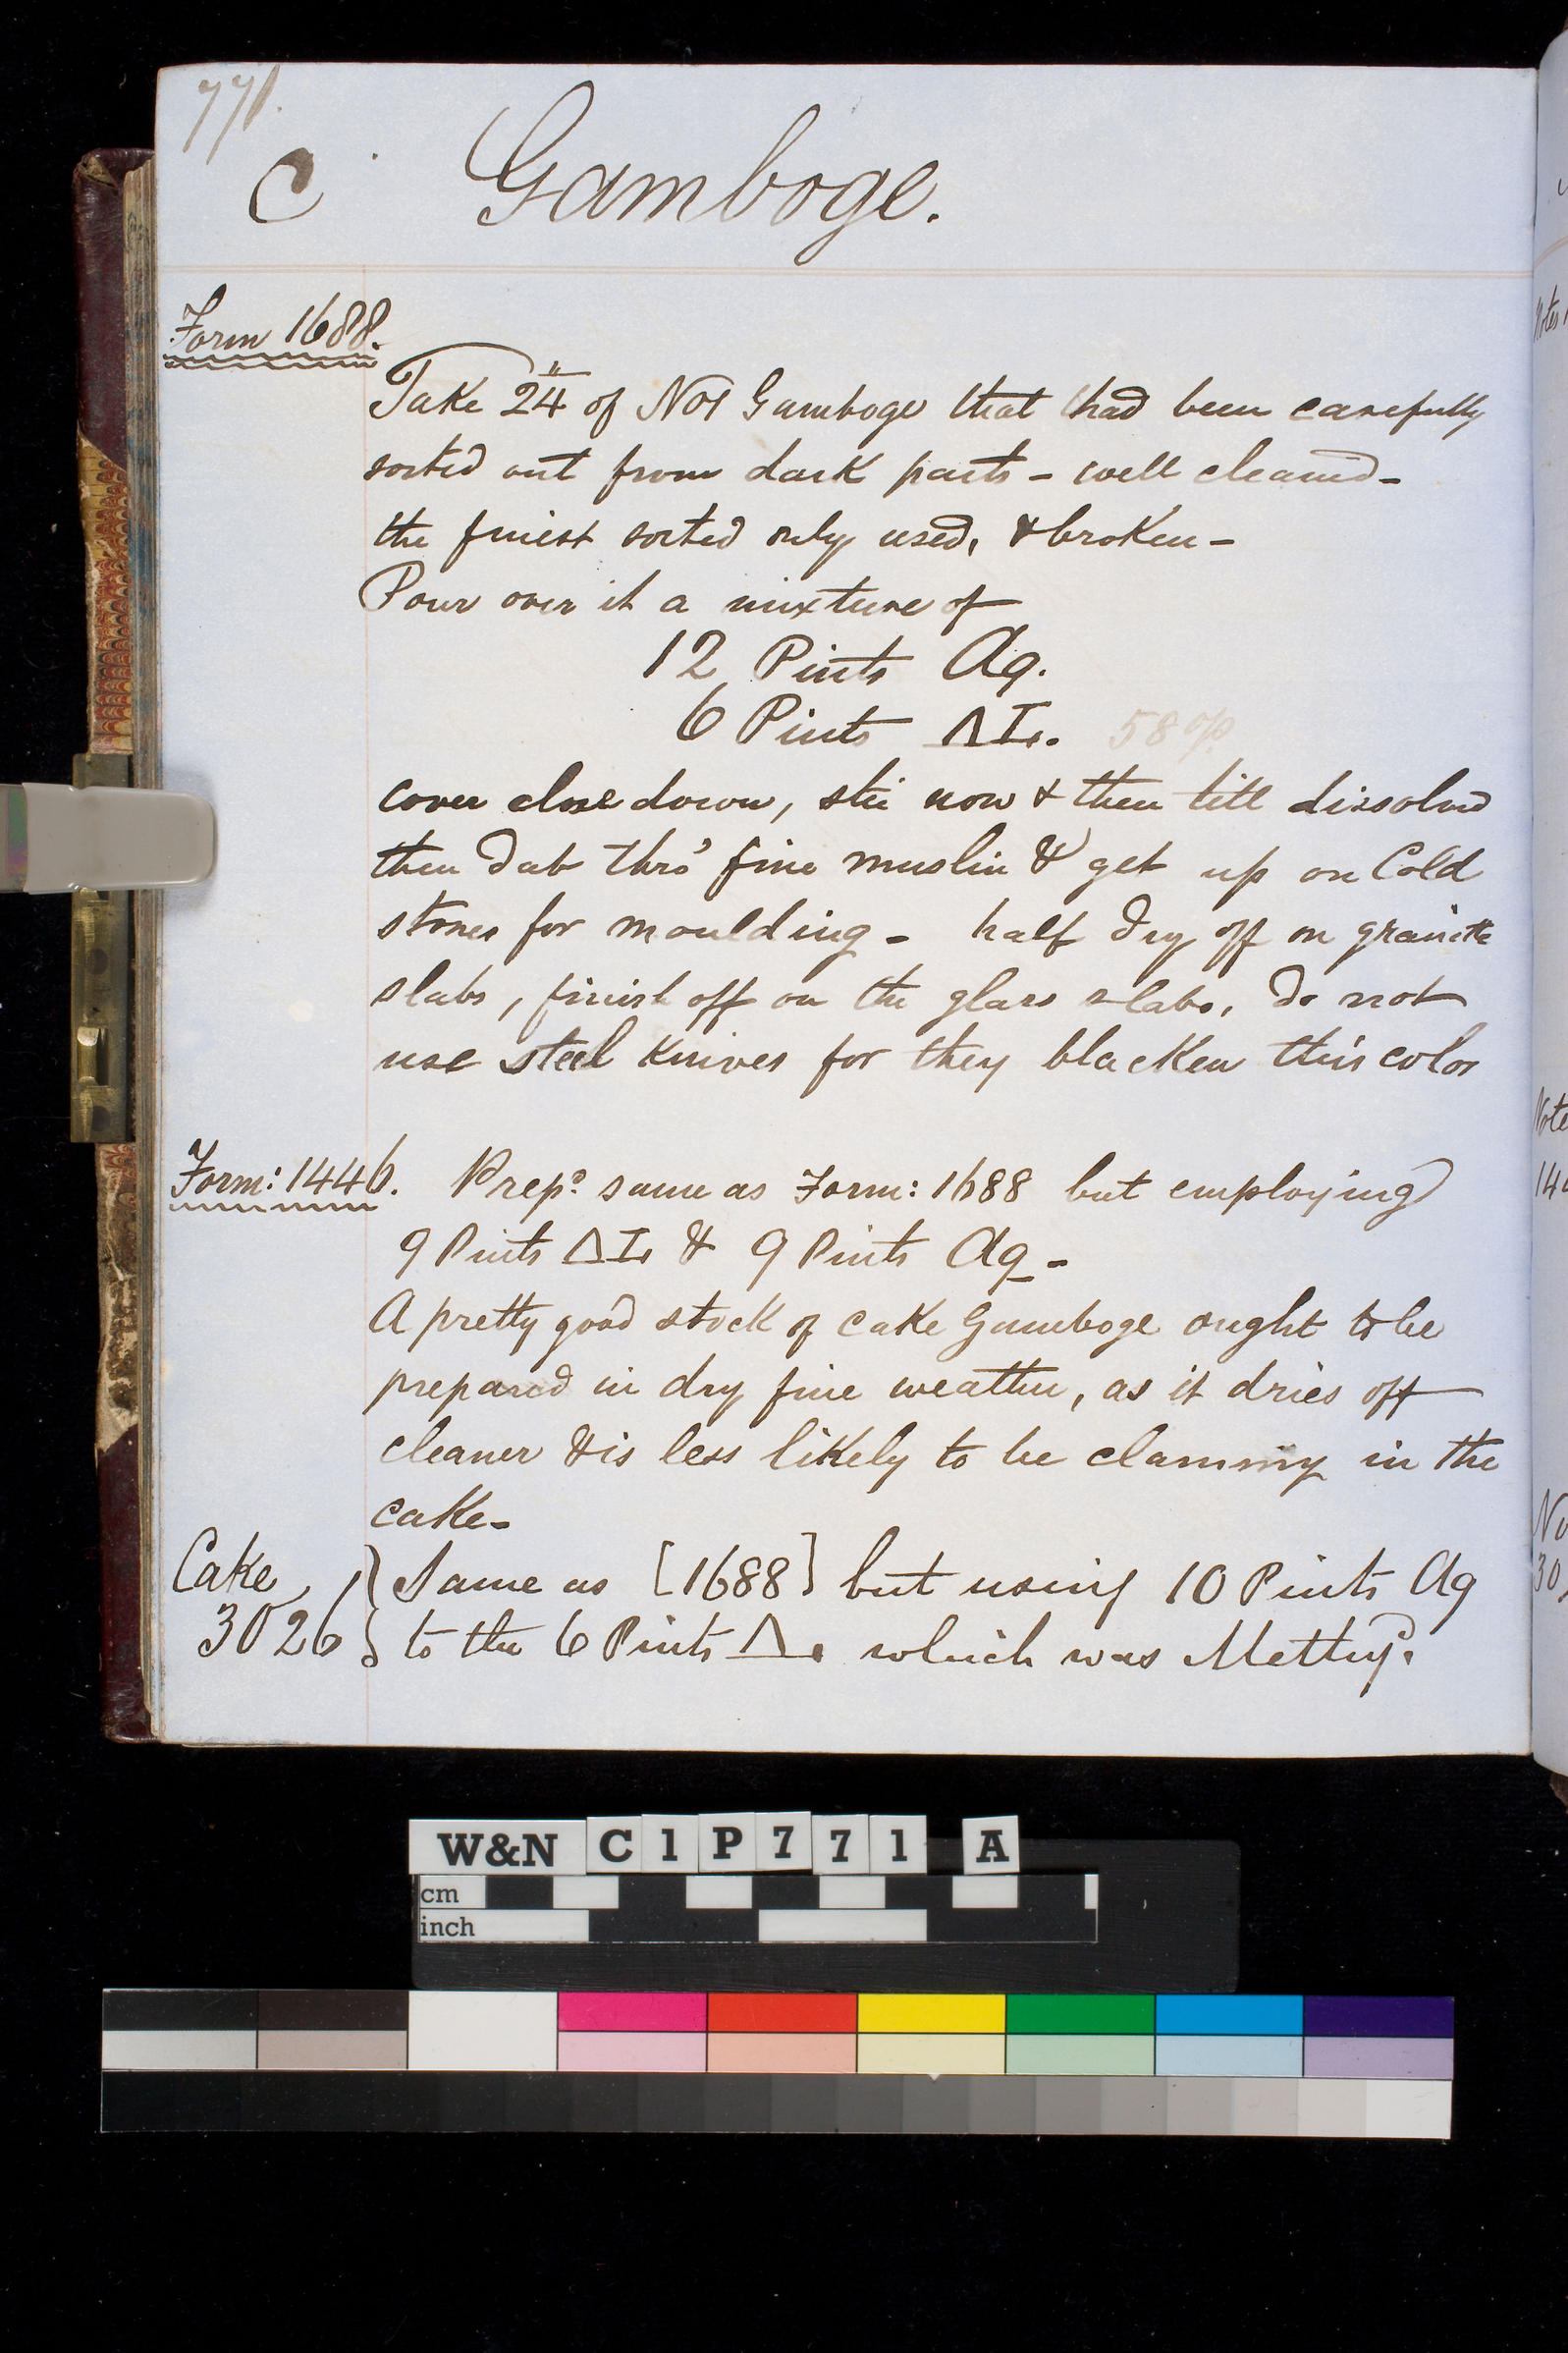 771.
C Gamboge.
Form 1688.
Take 24" of No1 Gamboge that had been carefully
sorted out from dark parts - well cleaned -
the finest sorted only used, & broken -
Pour over it a mixture of
12 Pints Aq.
6 Pints ΔI. 58 op
cover close down, stir now & then till dissolved
then dab thro' fine muslin & get up on Cold
stones for moulding - half dry off on granite
slabs, finish off on the glass slabs, do not
use steel knives for they blacken this color
Form: 1446. Prepd same as Form: 1688 but employing
9 Pints ΔI. & 9 Pints Aq -
A pretty good stock of cake Gamboge ought to be
prepared in dry fine weather, as it dries off
cleaner & is less likely to be clammy in the
cake -
Cake 3026 } Same as [1688] but using 10 Pints Aq
to the 6 Pints Δ. which was
W&N C1P771 A
cm
inch